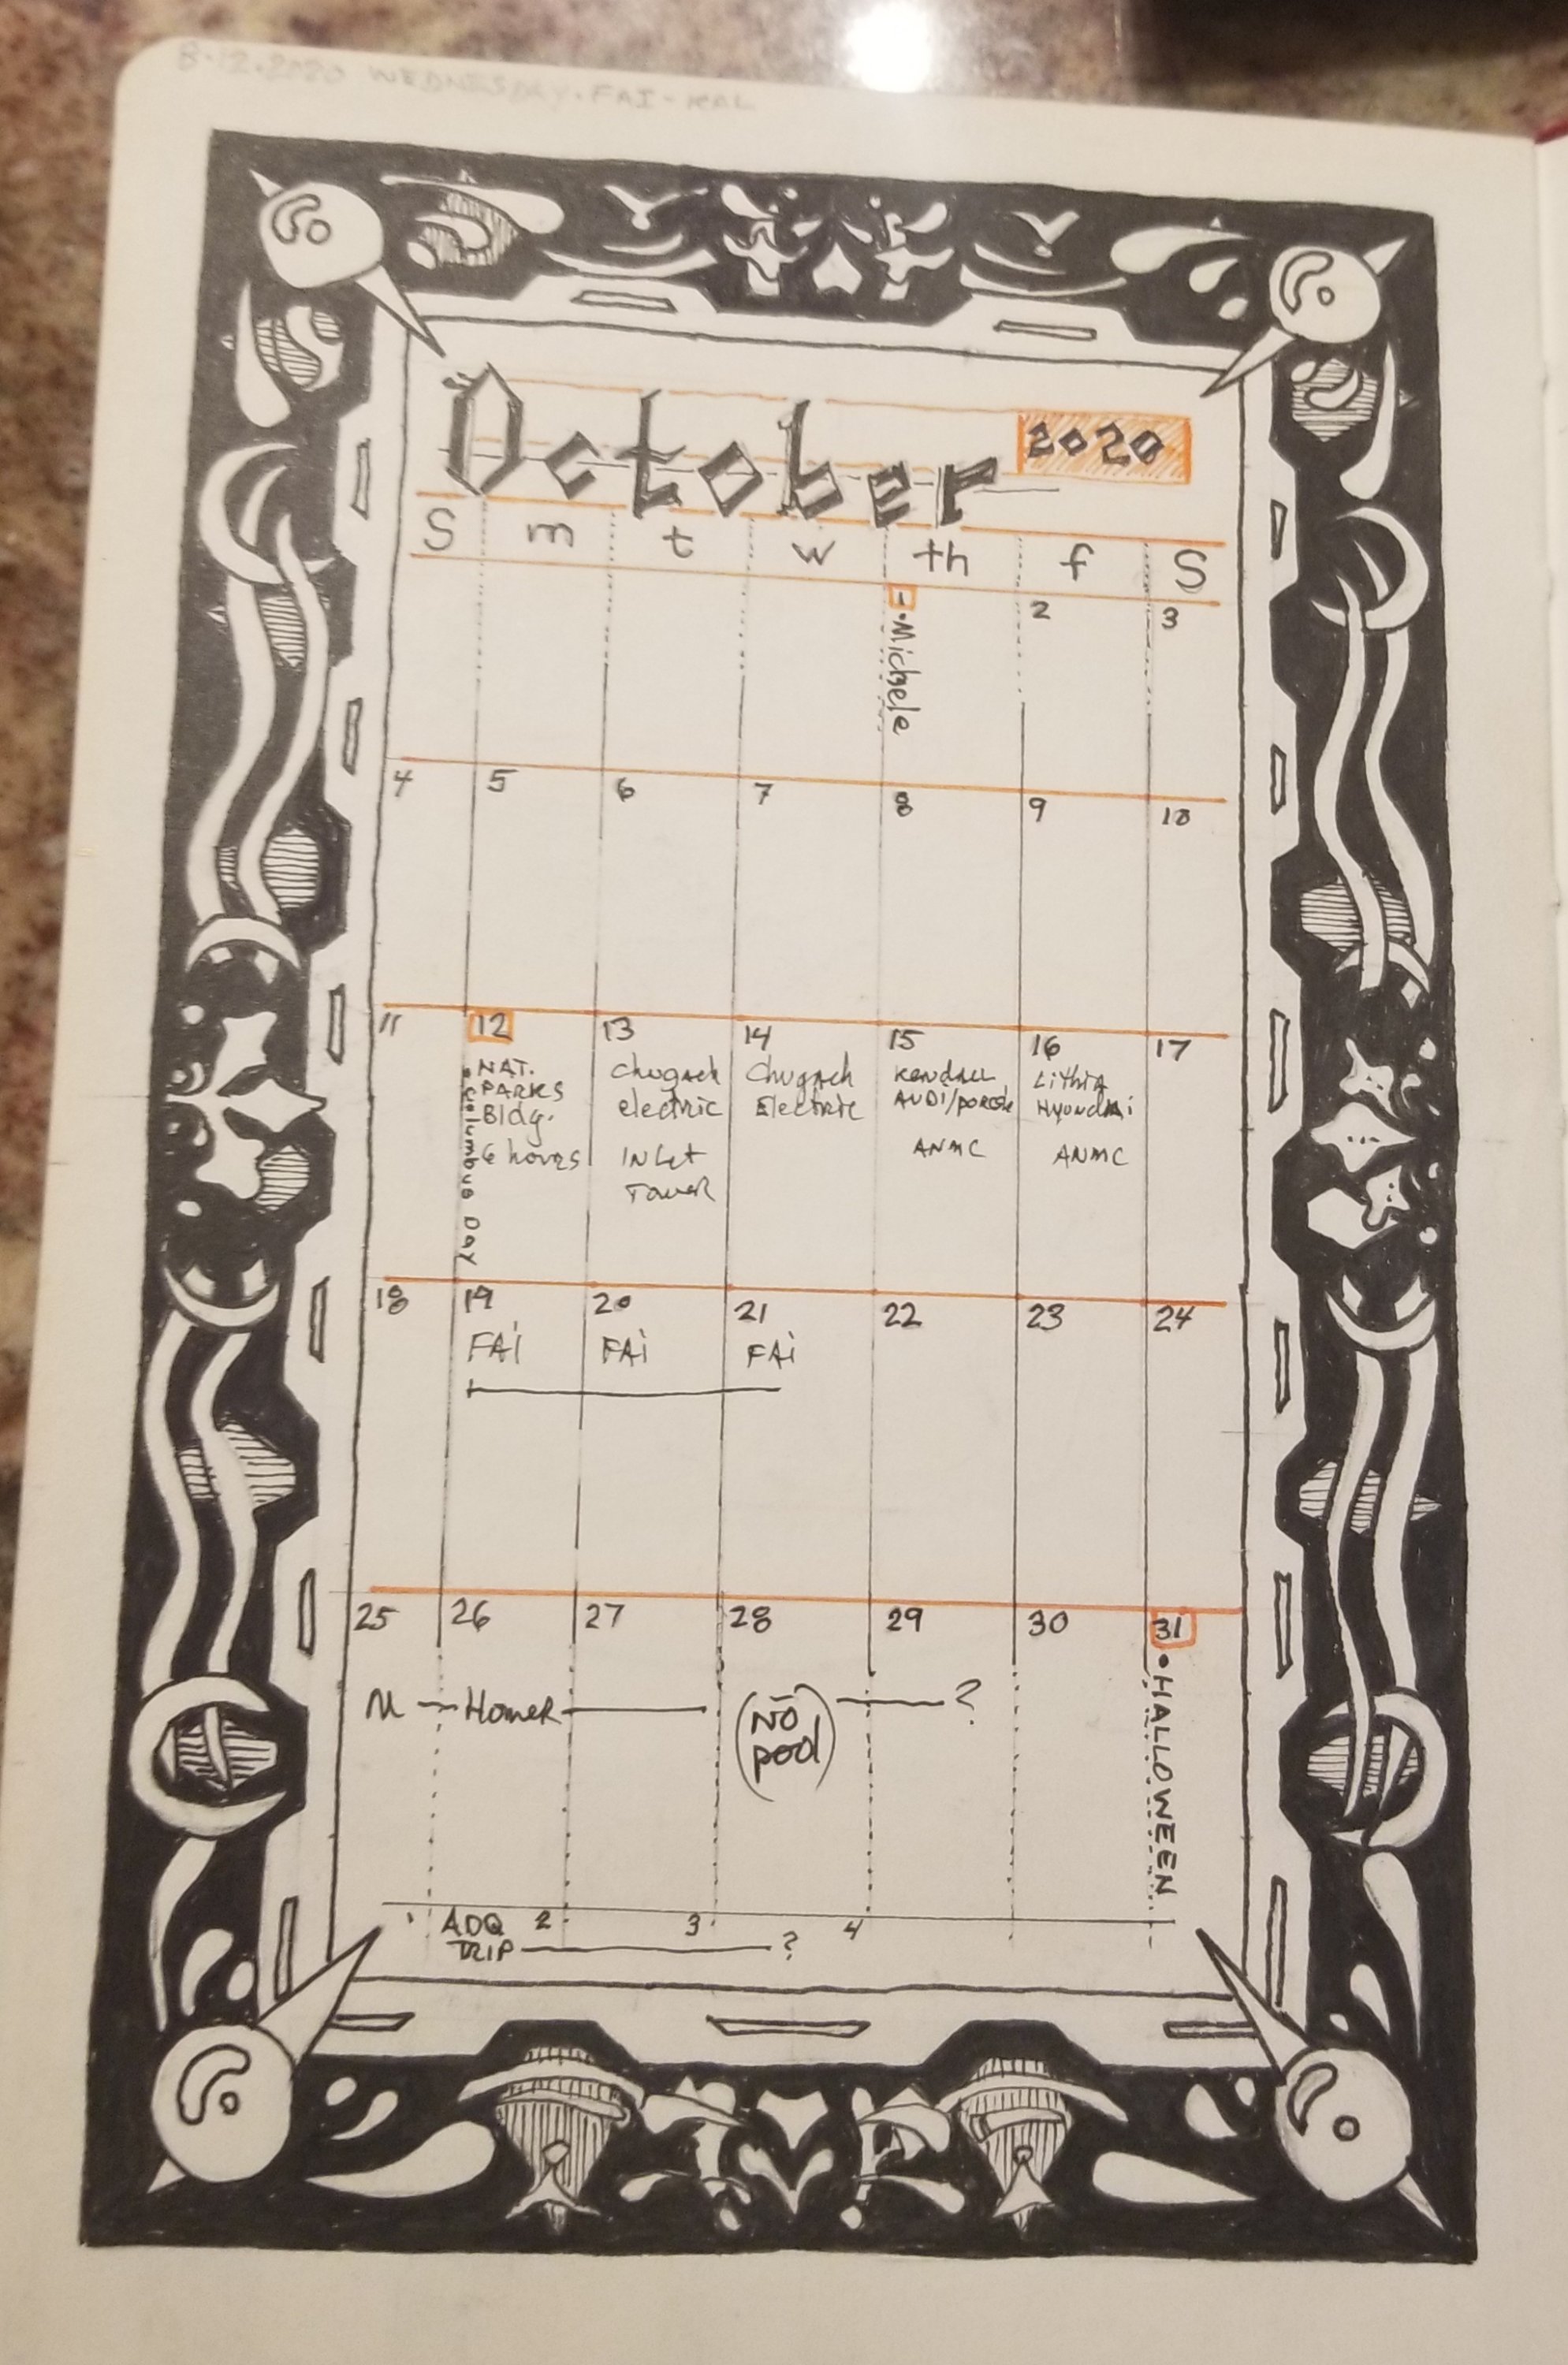 8.12.2020 WEDNESDAY. FAI - KAL
October 2020
S m t w th f S
1 • Michele
2
3
4 5 6 7 8 9 10
11
12
• Columbus Day
NAT.
PARKS
Bldg.
6 hours
13
Chugach
electric
INlet
Tower
14
Chugach
Electric
15
Kendall
AUDI/porsche
ANMC
16
Lithia
Hyundai
ANMC
17
18
19
FAi
20
FAi
21
FAi
22
23
24
25 26 27 28 29 30 31
• HALLOWEEN
Homer
(NO
pool)
?
1 2 3 4
ADQ
TRIP ?